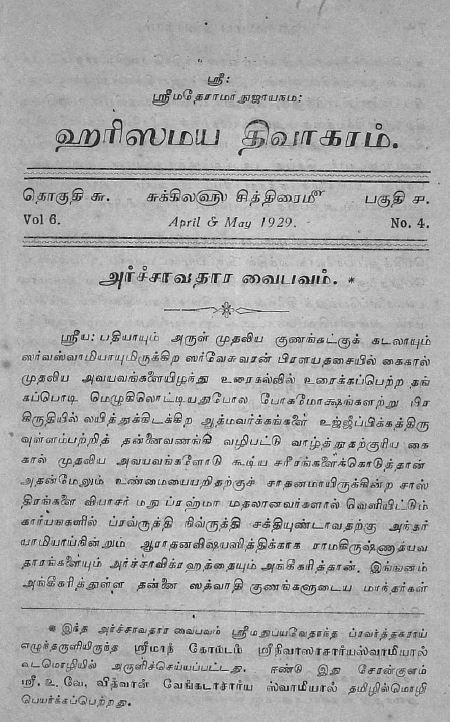 ஸ்ரீ:
ஸ்ரீமதேராமாநுஜாயநம:
ஹரிஸமய திவாகரம்.
தொகுதி சு. சுக்கில௵ சித்திரைமீ பகுதி ச.
Vol 6. April & May 1929. No. 4.
அர்ச்சாவதார வைபவம். *
ஸ்ரீய: பதியாயும் அருள் முதலிய குணங்கட்குக் கடலாயும்
ஸர்வஸ்வாமியாயுமிருக்கிற ஸர்வேசுவரன் பிரளயதசையில் கைகால்
முதலிய அவயவங்களையிழந்து உரைகல்லில் உரைக்கப்பெற்ற தங்
கப்பொடி மெழுகிலொட்டியதுபோல போகமோக்ஷங்களற்று பிர
கிருதியில் லயித்துக்கிடக்கிற ஆத்மவர்க்கங்களை உஜ்ஜீப்பிக்கத்திரு
வுள்ளம்பற்றித் தன்னைவணங்கி வழிபட்டு வாழ்த்துதற்குரிய கை
கால் முதலிய அவயவங்களோடு கூடிய சரீரங்களைக்கொடுத்தான்
அதன்மேலும் உண்மையையறிதற்குச் சாதனமாயிருக்கின்ற சாஸ்
திரங்களை வியாசர் மநு ப்ரஹ்மா முதலானவர்களால் வெளியிட்டும்
கார்யங்களில் ப்ரவ்ருத்தி நிவ்ருத்தி சக்தியுண்டாவதற்கு அந்தர்
யாமியாய்நின்றும் ஆராதனவிஷயஸித்திக்காக ராமகிருஷ்ணாத்யவ
தாரங்களையும் அர்ச்சாவிக்ரஹத்தையும் அங்கீகரித்தான். இங்ஙனம்
அங்கீகரித்துள்ள தன்னை ஸத்வாதி குணங்களுடைய மாந்தர்கள்
* இந்த அர்ச்சாவதார வைபவம் ஸ்ரீமதுபயவேதாந்த ப்ரவர்த்தகராய்
எழுந்தருளியிருந்த ஸ்ரீமாந் கோமடம் ஸ்ரீநிவாஸாசார்யஸ்வாமியால்
வடமொழியில் அருளிச்செய்யப்பட்டது. ஈண்டு இது சேரன்குளம்
ஸ்ரீ. உ. வே. வித்வான் வேங்கடாசார்ய ஸ்வாமியால் தமிழில்மொழி
பெயர்க்கப்பெற்றது.